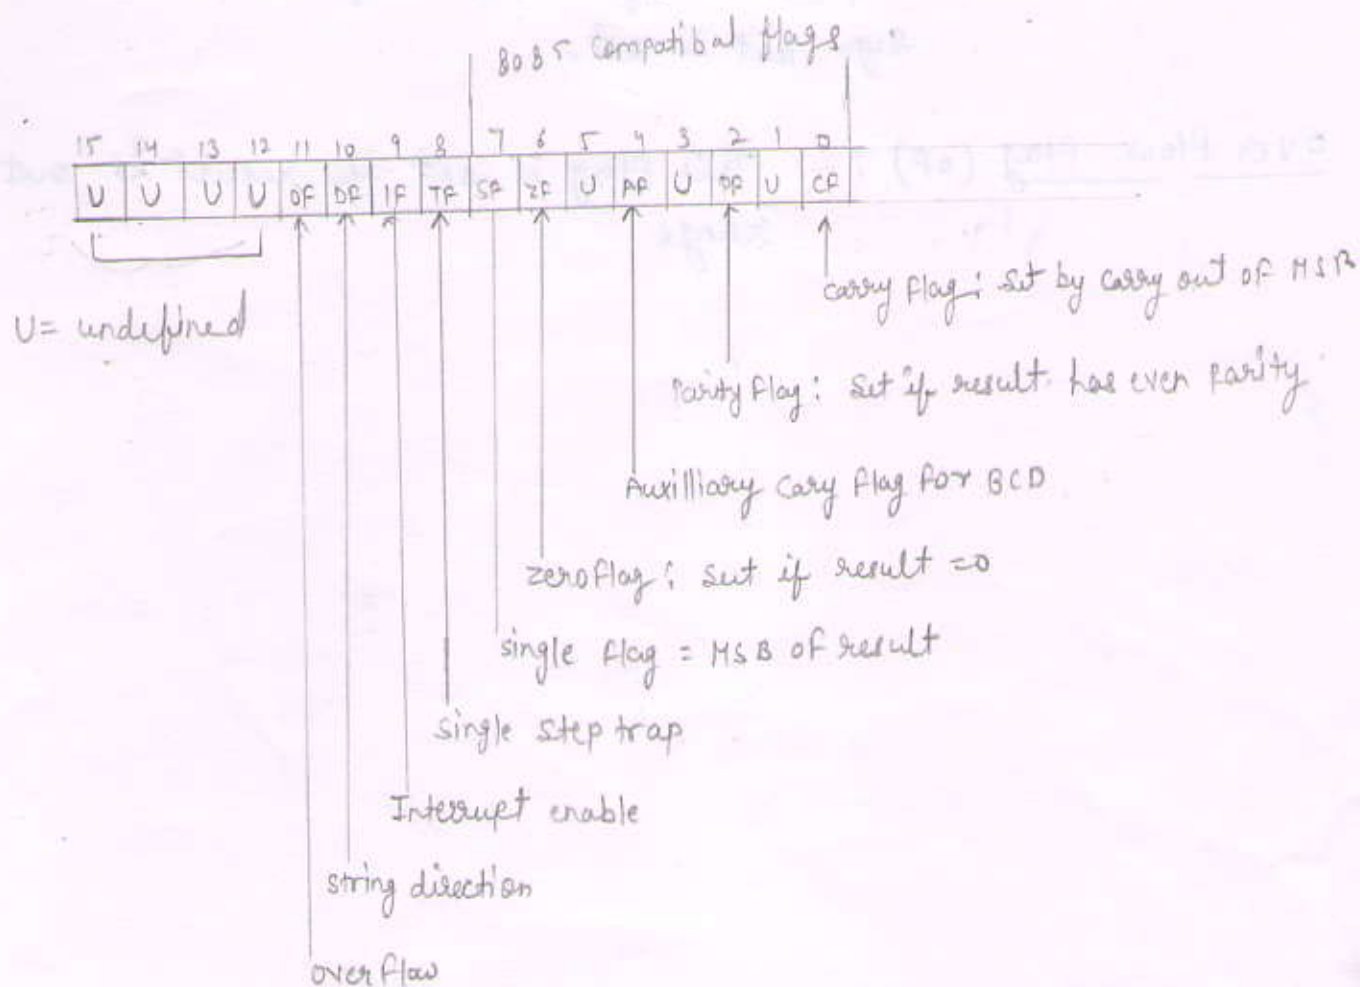 8085 Compatibal flags
15 14 13 12 11 10 9 8 7 6 5 4 3 2 1 0
U U U U OF DF IF TF SF ZF U AF U PF U CF
U= undefined
carry flag: Set by carry out of MSB
Parity flag: Set if result has even Parity
Auxilliary Cary flag for BCD
zero flag: Set if result =0
single flag = MSB of result
single step trap
Interrupt enable
string direction
over flow